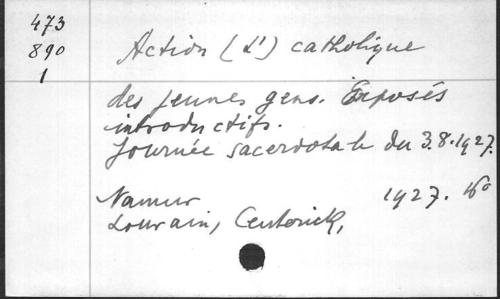 473
890
1
Action (L') catholique
des jeunes gens. Exposés
introductifs.
Journée sacerdotale du 3.8.1927.
Namur 1927. 16°
Louvain, Ceuterick,